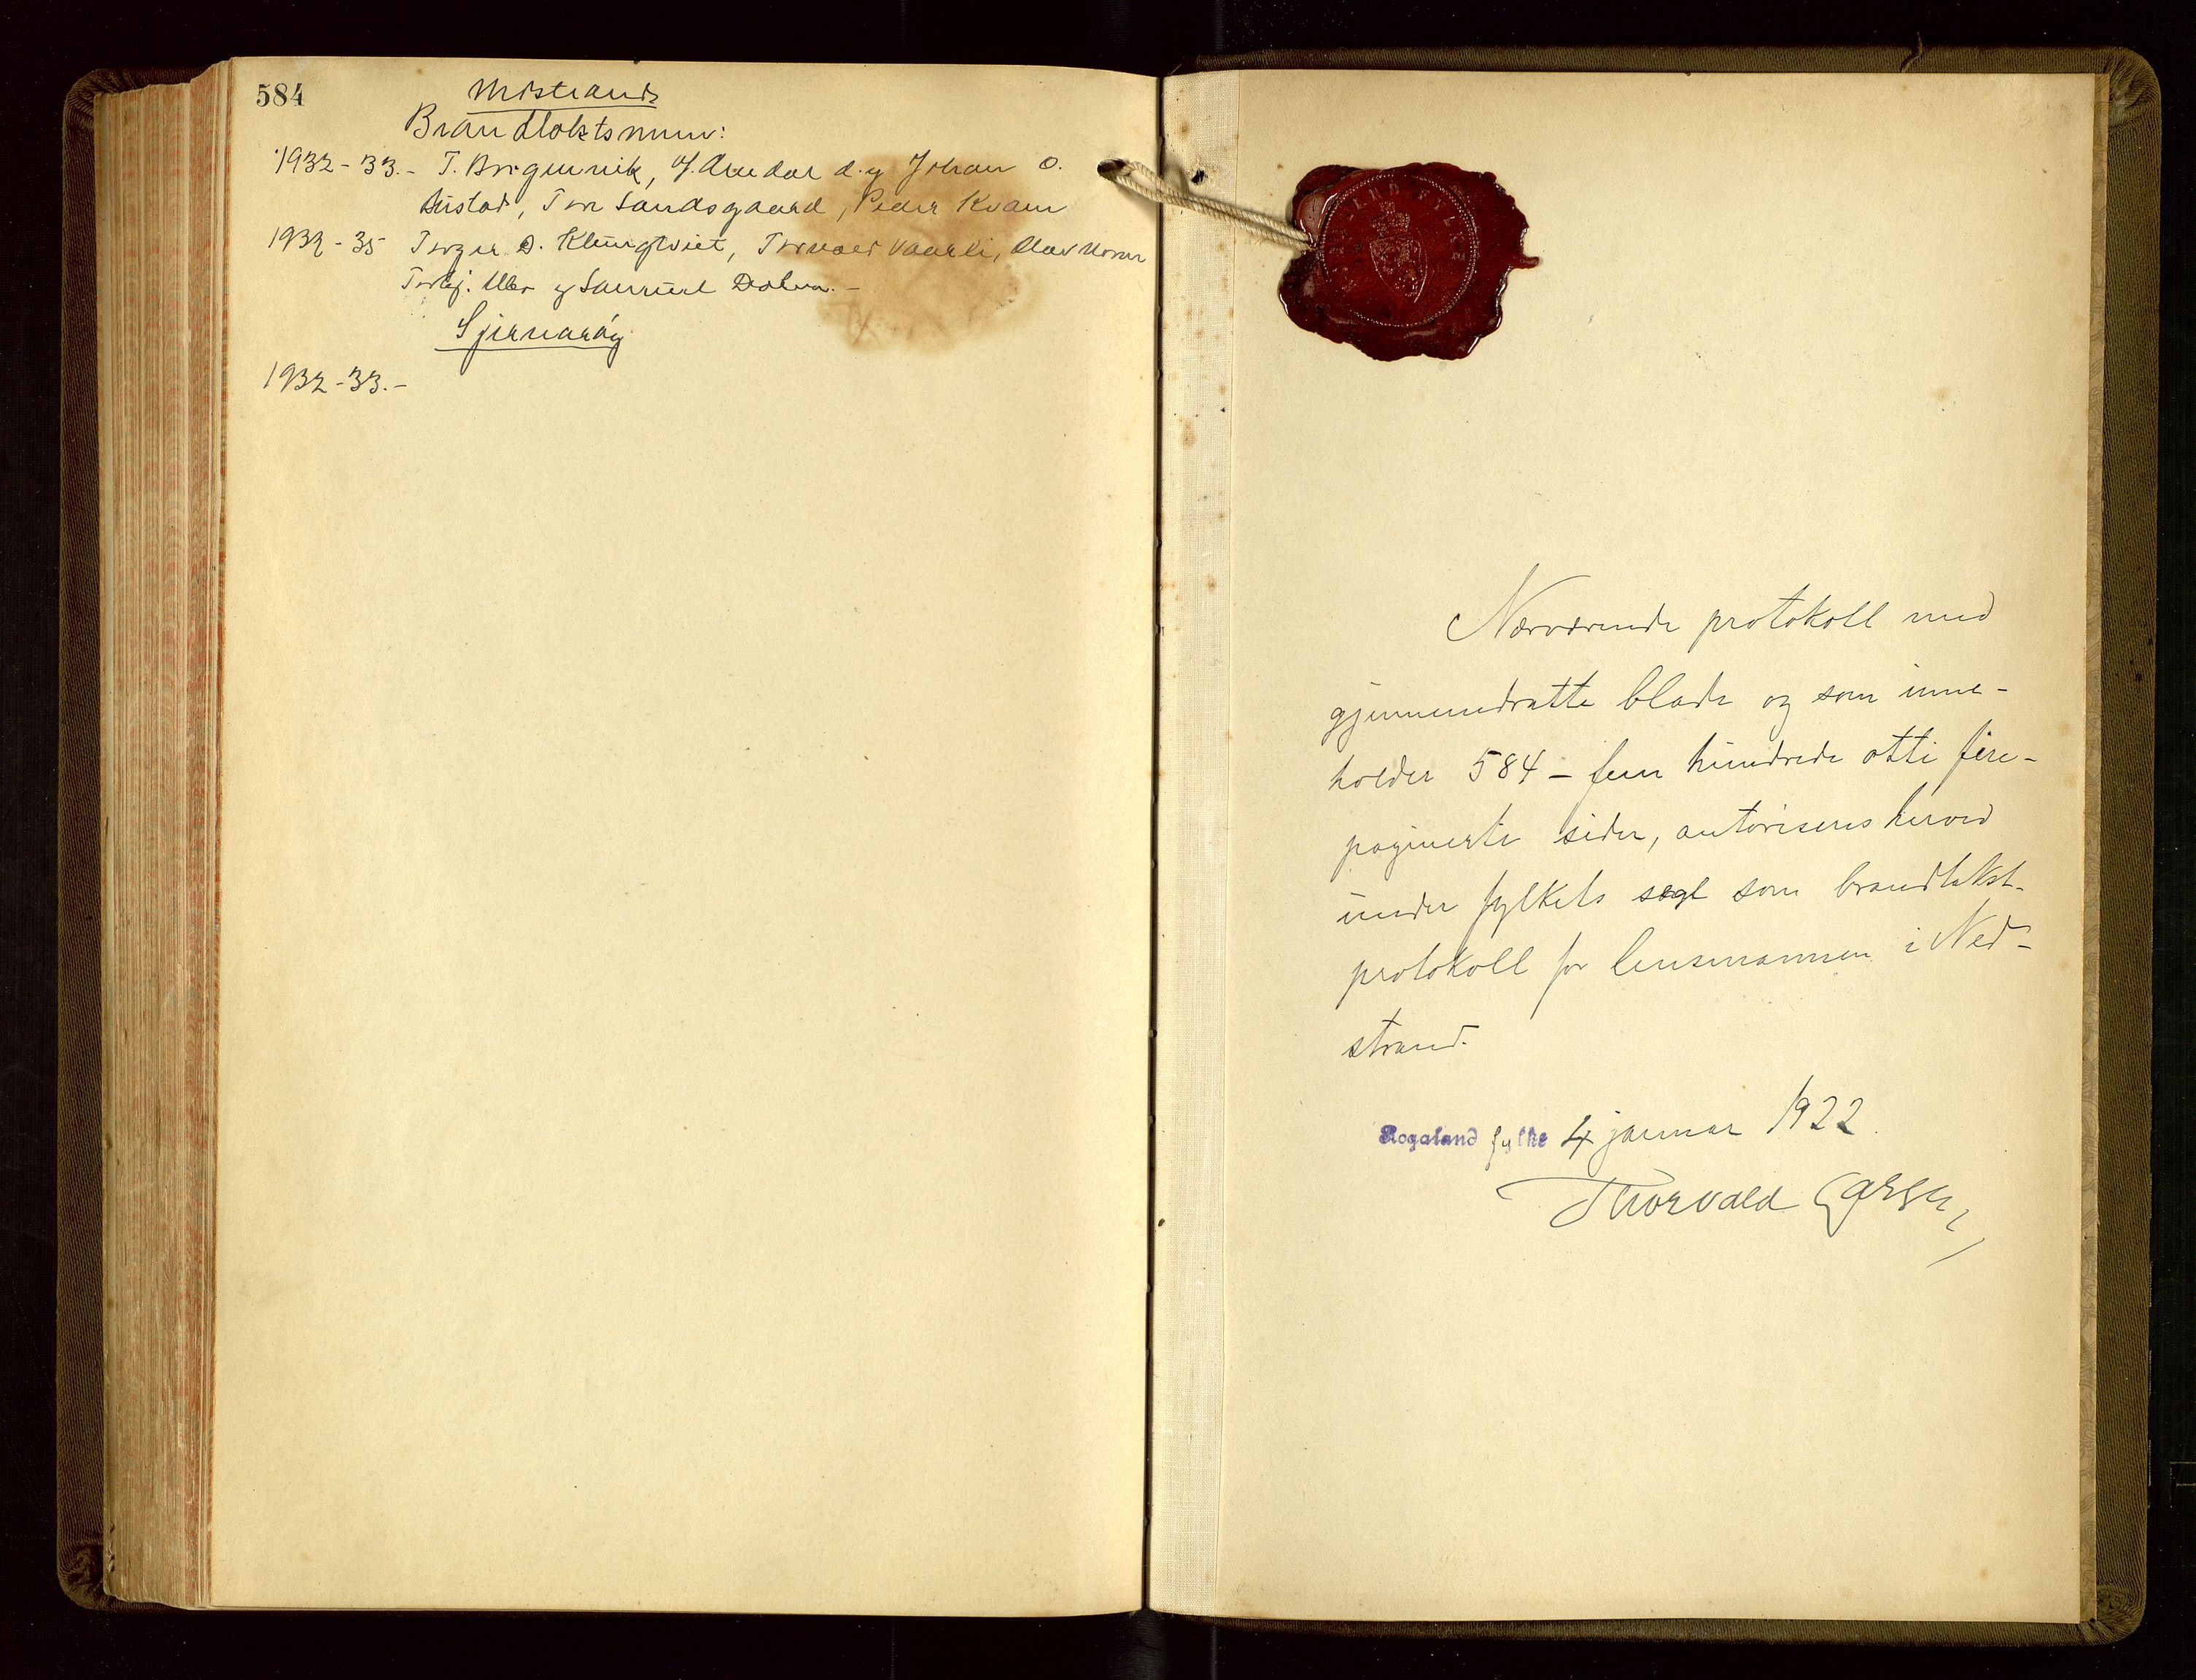 584
Brandtakstsmenn:
1932-33.- T. Borgenvik, J. Aredal d.y Johan O.
Austad, Tore Sandsgaard, Peder Kvam
1932-35 Torger D. Klungtveit, Torvald Vaarli, Olav
og Samuel Dalva.-
Sjernarøy
1932-33.-
ROGALAND FYLKE
Nærværende protokoll med
gjennemdratte blade og som inne-
holder 584 - fem hundrede otti fire-
paginerte sider, autoriseres herved
under fylkets segl som brandtakst-
protokoll for lensmannen i Ned-
strand.
Rogaland fylke 4 januar 1922.
Thorvald Larsen